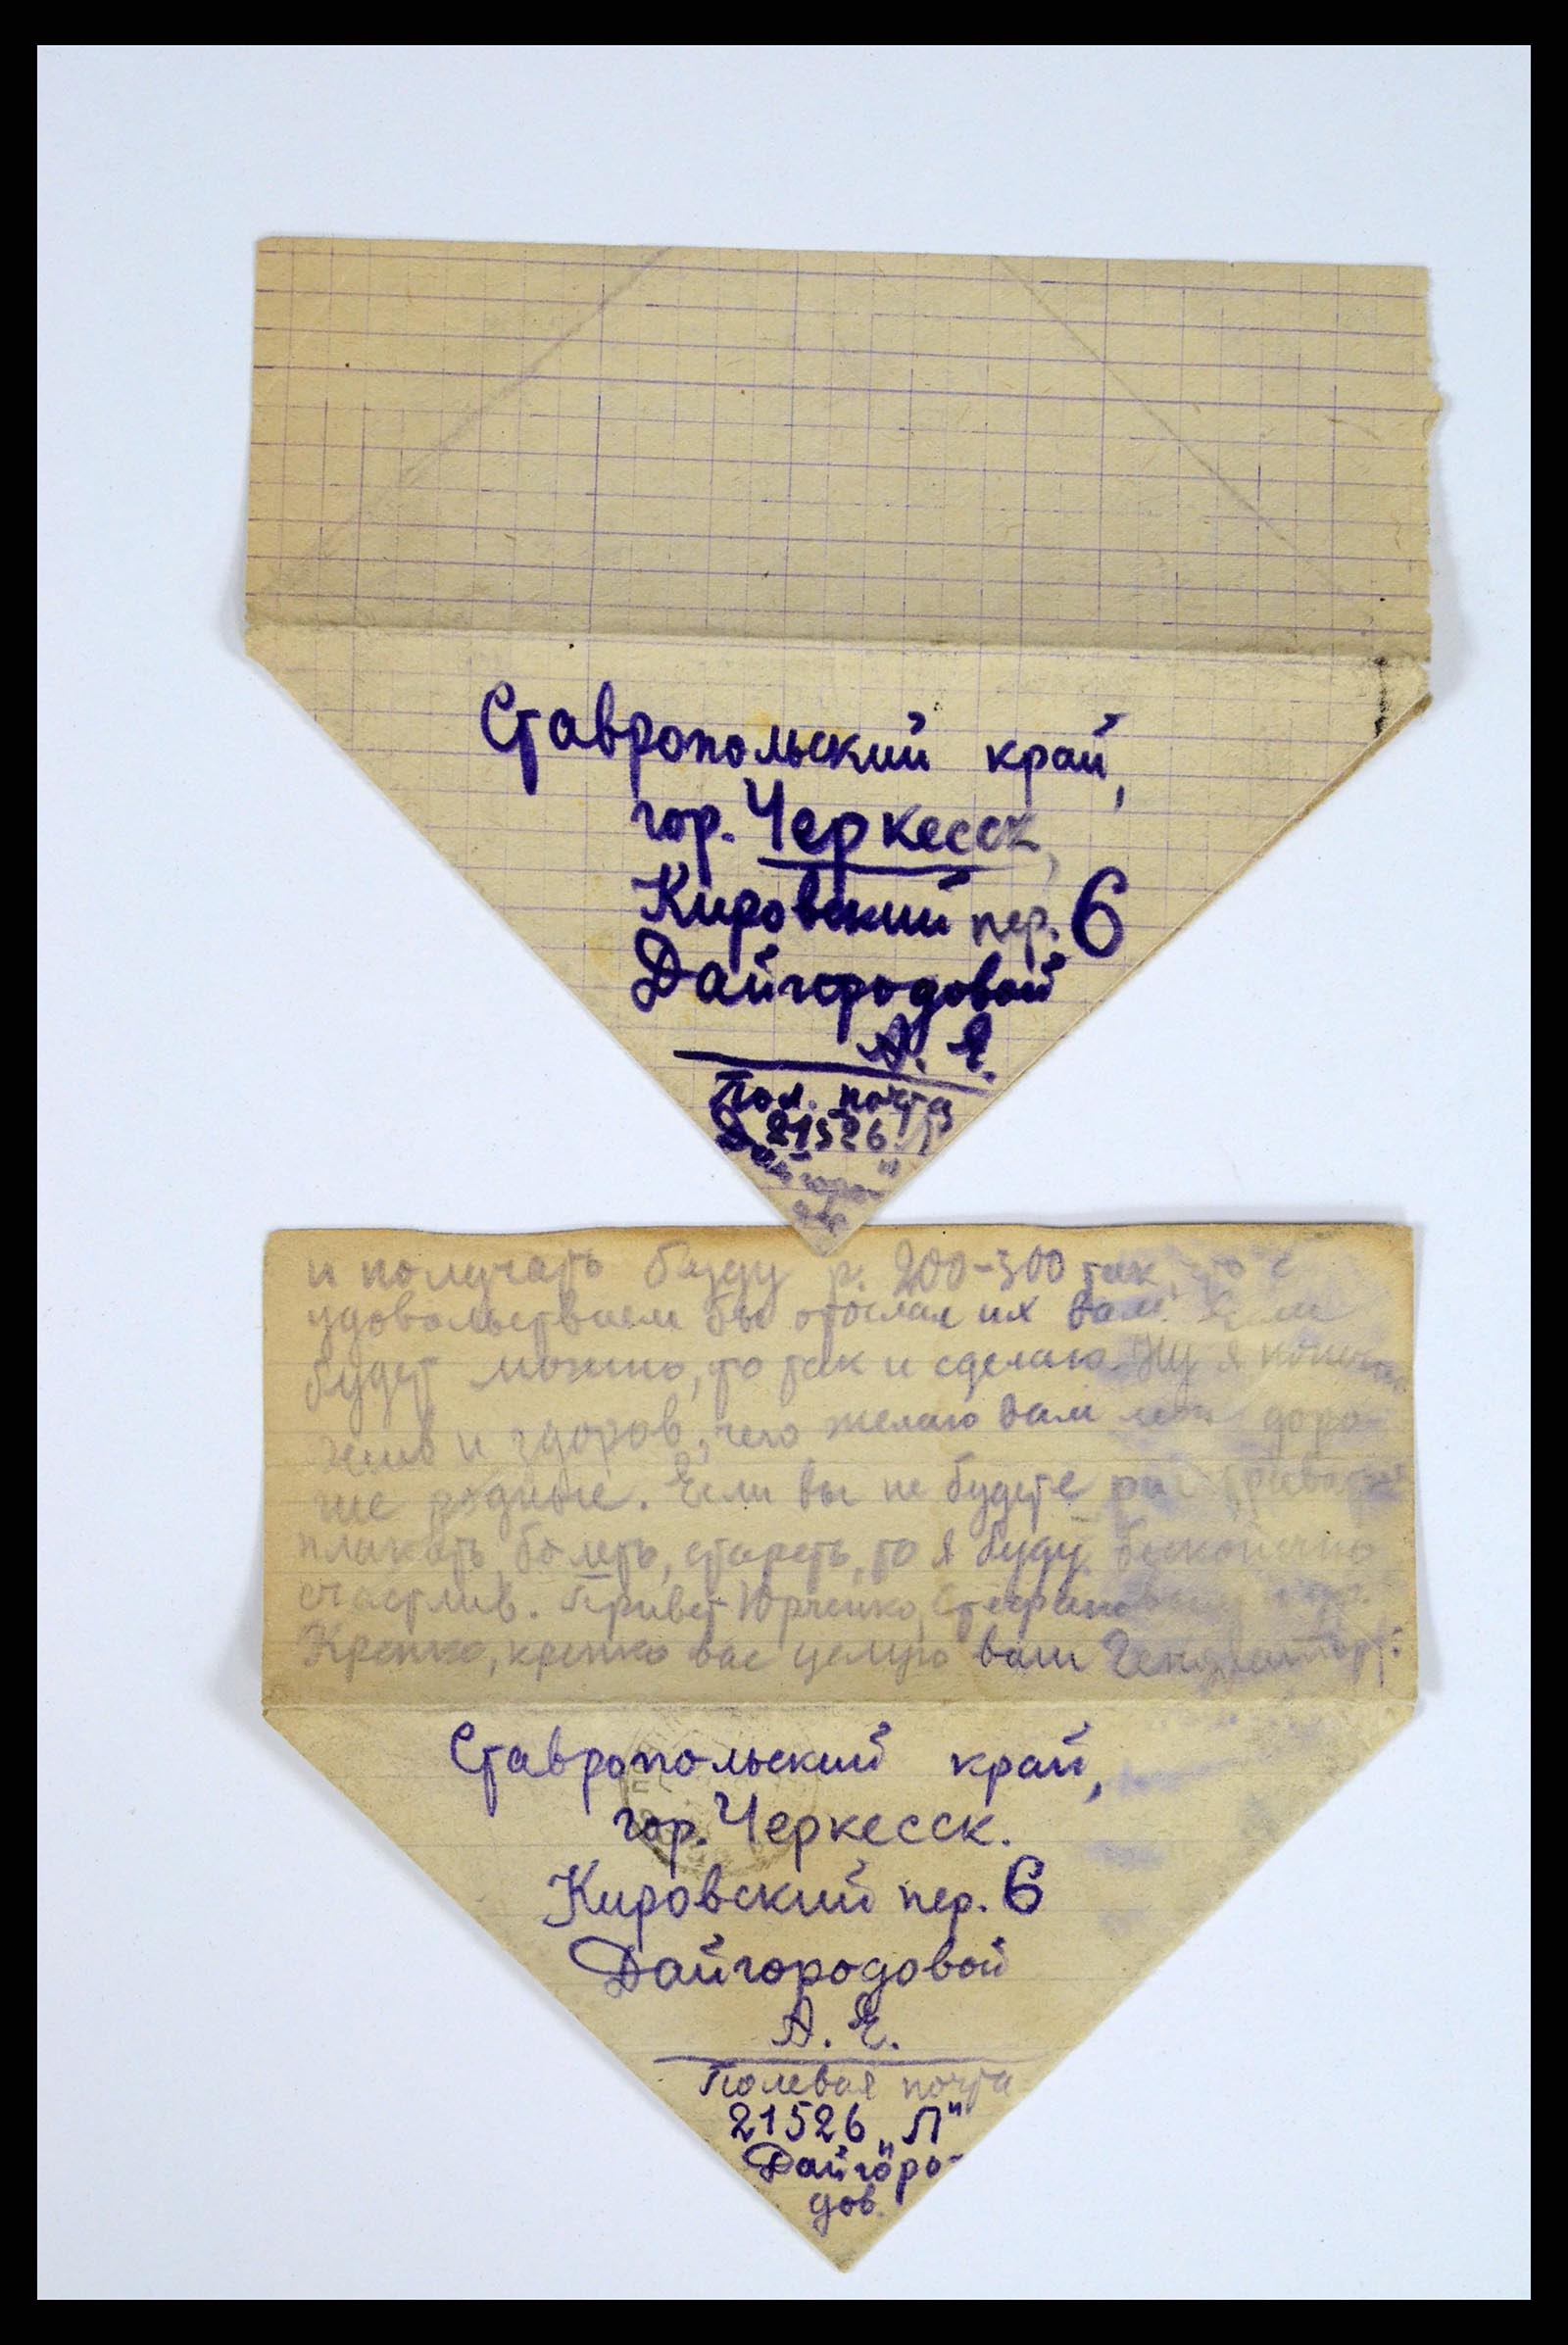 Ставропольский край,
гор. Черкесск,
Кировский пер. 6
Дайгородовой
А. Я.
Пол. почта
21526 "Л"
Дайгоро-
дов
и получать буду р. 200-300 так что с
удовольствием бы отослал их вам. Если
будет можно, то так и сделаю. Ну я конечно
жив и здоров, чего желаю вам мои доро-
гие родные. Если вы не будете
плакать, болеть, стареть, то я буду бесконечно
счастлив. Привет Юрченко,
Крепко, крепко вас целую ваш
Ставропольский край,
гор. Черкесск.
Кировский пер. 6
Дайгородовой
А. Я.
Полевая почта
21526 "Л"
Дайгоро-
дов.